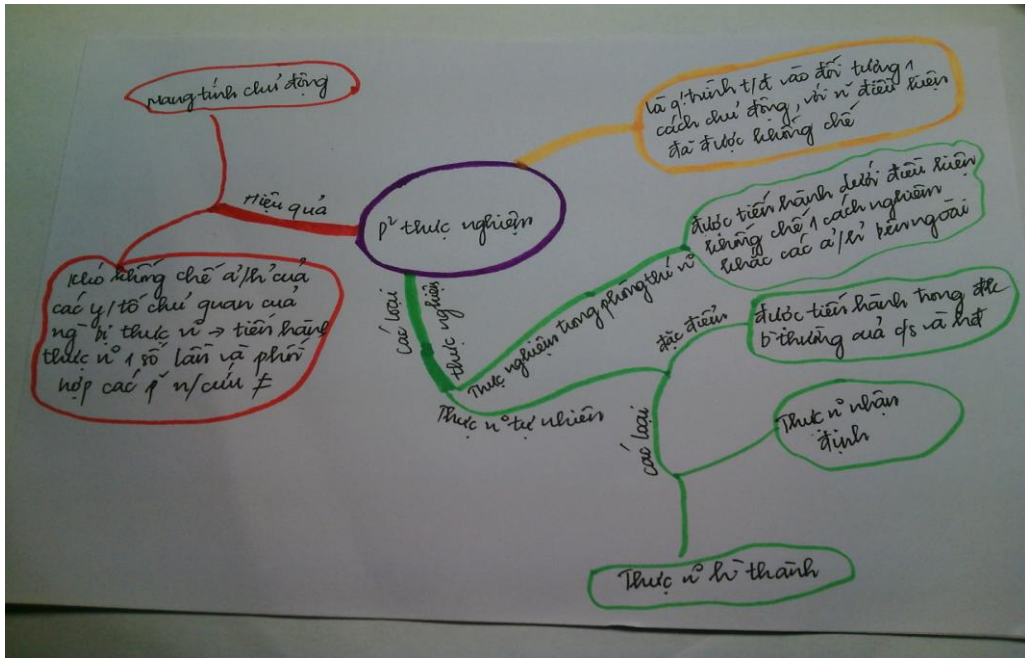 Mang tính chủ động
Hiệu quả
Khó khống chế a'/h' của
các y/tố chủ quan của
ng` bị thực n° → tiến hành
thực n° 1 số lần và phối
hợp các p² n/cứu ≠
p² thực nghiệm
là q/trình t/đ vào đối tượng 1
cách chủ động, với n~ điều kiện
đã được khống chế
các loại
thực nghiệm
Thực nghiệm trong phòng thí n°
được tiến hành dưới điều kiện
khống chế 1 cách nghiêm
khắc các a'/h' bên ngoài
Thực n° tự nhiên
đặc điểm
được tiến hành trong đk
b`thường của c/s và hđ
các loại
Thực n° nhận
định
Thực n° h` thành